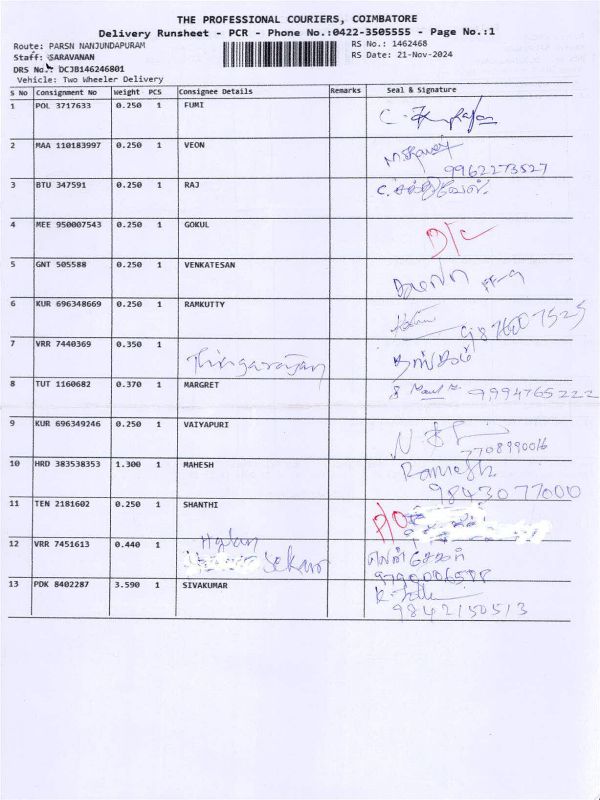 THE PROFESSIONAL COURIERS, COIMBATORE
Delivery Runsheet - PCR - Phone No.:0422-3505555 - Page No.:1
Route: PARSN NANJUNDAPURAM RS No.: 1462468
Staff: SARAVANAN RS Date: 21-Nov-2024
DRS No.: DCJB146246801
Vehicle: Two Wheeler Delivery
S No Consignment No Weight PCS Consignee Details Remarks Seal & Signature
1 POL 3717633 0.250 1 FUMI
2 MAA 110183997 0.250 1 VEON
9962273527
3 BTU 347591 0.250 1 RAJ
4 MEE 950007543 0.250 1 GOKUL D/C
5 GNT 505588 0.250 1 VENKATESAN
6 KUR 696348669 0.250 1 RAMKUTTY
7 VRR 7440369 0.350 1 Thingarajan
8 TUT 1160682 0.370 1 MARGRET 9994765222
9 KUR 696349246 0.250 1 VAIYAPURI
7708990016
10 HRD 383538353 1.300 1 MAHESH Ramesh
9843077000
11 TEN 2181602 0.250 1 SHANTHI
12 VRR 7451613 0.440 1 sekar
13 PDK 8402287 3.590 1 SIVAKUMAR
9842150513